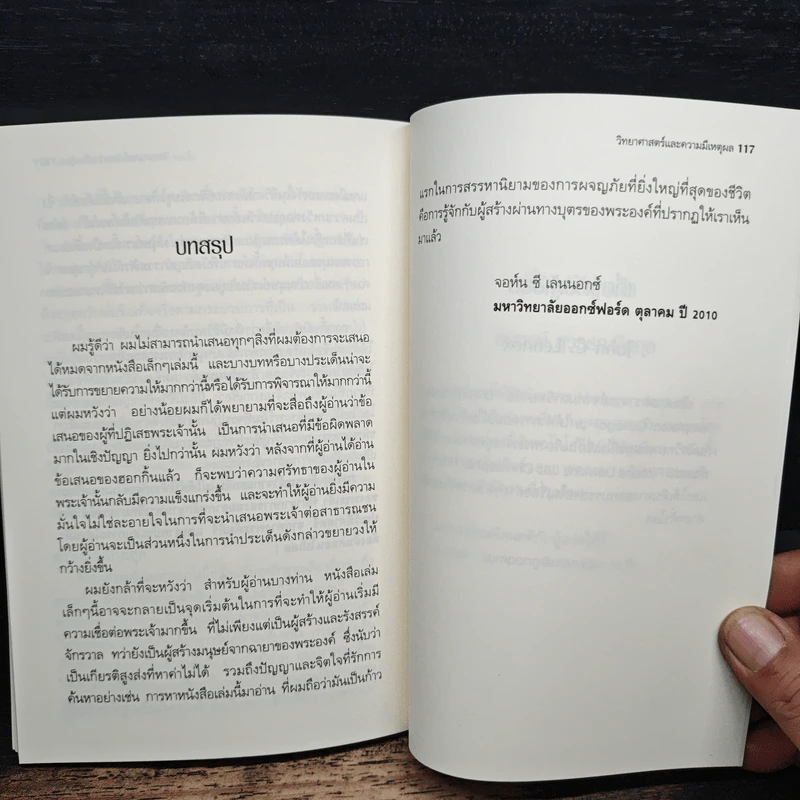 บทสรุป
ผมรู้ดีว่า ผมไม่สามารถนำเสนอทุกๆสิ่งที่ผมต้องการจะเสนอ
ได้หมดจากหนังสือเล็กๆเล่มนี้ และบางบทหรือบางประเด็นน่าจะ
ได้รับการขยายความให้มากกว่านี้หรือได้รับการพิจารณาให้มากกว่านี้
แต่ผมหวังว่า อย่างน้อยผมก็ได้พยายามที่จะสื่อถึงผู้อ่านว่าข้อ
เสนอของผู้ที่ปฏิเสธพระเจ้านั้น เป็นการนำเสนอที่มีข้อผิดพลาด
มากในเชิงปัญญา ยิ่งไปกว่านั้น ผมหวังว่า หลังจากที่ผู้อ่านได้อ่าน
ข้อเสนอของฮอกกิ้นแล้ว ก็จะพบว่าความศรัทธาของผู้อ่านใน
พระเจ้านั้นกลับมีความแข็งแกร่งขึ้น และจะทำให้ผู้อ่านยิ่งมีความ
มั่นใจไม่ใช่ละอายใจในการที่จะนำเสนอพระเจ้าต่อสาธารณชน
โดยผู้อ่านจะเป็นส่วนหนึ่งในการนำประเด็นดังกล่าวขยายวงให้
กว้างยิ่งขึ้น
ผมยังกล้าที่จะหวังว่า สำหรับผู้อ่านบางท่าน หนังสือเล่ม
เล็กๆนี้อาจจะกลายเป็นจุดเริ่มต้นในการที่จะทำให้ผู้อ่านเริ่มมี
ความเชื่อต่อพระเจ้ามากขึ้น ที่ไม่เพียงแต่เป็นผู้สร้างและรังสรรค์
จักรวาล ทว่ายังเป็นผู้สร้างมนุษย์จากฉายาของพระองค์ ซึ่งนับว่า
เป็นเกียรติสูงส่งที่หาค่าไม่ได้ รวมถึงปัญญาและจิตใจที่รักการ
ค้นหาอย่างเช่น การหาหนังสือเล่มนี้มาอ่าน ที่ผมถือว่ามันเป็นก้าว
วิทยาศาสตร์และความมีเหตุผล 117
แรกในการสรรหานิยามของการผจญภัยที่ยิ่งใหญ่ที่สุดของชีวิต
คือการรู้จักกับผู้สร้างผ่านทางบุตรของพระองค์ที่ปรากฏให้เราเห็น
มาแล้ว
จอห์น ซี เลนนอกซ์
มหาวิทยาลัยออกซ์ฟอร์ด ตุลาคม ปี 2010